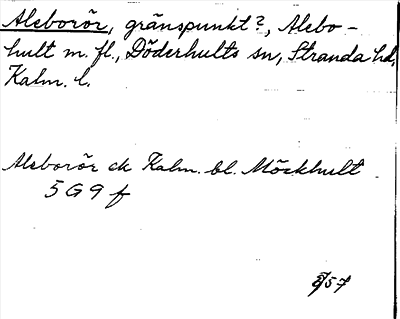 Aleborör, gränspunkt?, Alebo-
hult m. fl., Döderhults sn, Stranda hd,
Kalm. l.
Aleborör ek Kalm. bl. Möckhult
5 G 9 f
57